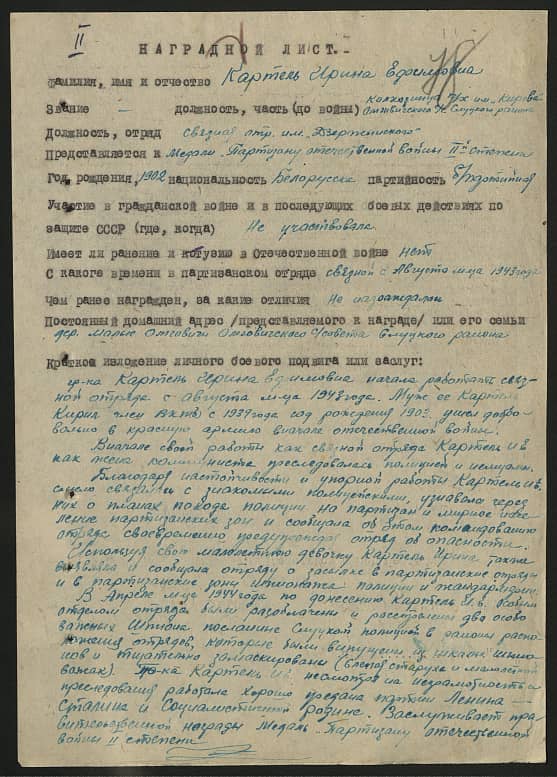 II
НАГРАДНОЙ ЛИСТ.
Фамилия, имя и отчество Картель Ирина Ефимовна
Звание – должность, часть (до войны) Колхозница к/х им. Кирова
Омговичского с/с Слуцкого района
Должность, отряд связная отр. им. Дзержинского
Представляется к Медали „Партизану отечественной войны II й степени
Год рождения, 1902 национальность Белоруска партийность б/партийная
Участие в гражданской войне и в последующих боевых действиях по
защите СССР (где, когда) Не участвовала
Имеет ли ранение и котузию в Отечественной войне Нет
С какого времени в партизанском отряде связной с Августа м-ца 1943 года
Чем ранее награжден, за какие отличия Не награждалась
Постоянный домашний адрес /представляемого к награде/ или его семьи
дер. Малые Омговичи Омговичского с/совета Слуцкого района
Краткое изложение личного боевого подвига или заслуг:
гр-ка Картель Ирина Ефимовна начала работать связ-
ной отряда с августа м-ца 1943 года. Муж ее Картель
Кирил член ВКП(б) с 1939 года год рождения 1903. ушел добро-
вольно в красную армию вначале отечественной войны.
Вначале своей работы как связной отряда Картель И.Е.
как жена коммуниста преследовалась полицией и немцами.
Благодаря настойчивости и упорной работы Картель И.Е.
связалась с знакомыми полицейскими, узнавала через
них о планах похода полиции на партизан и мирное насе-
ление партизанских зон и сообщала об этом командованию
отряда, своевременно предупреждая отряд об опасности.
Используя свою малолетнюю девочку Картель Ирина также
выявляла и сообщала отряду о засылке в партизанские отряды
и в партизанские зоны шпионажа полиции и жандармерии.
В Апреле м-це 1944 года по донесению Картель И.Е. Особым
отделом отряда были разоблачены и расстреляны два особо
важных шпиона посланные Слуцкой полицией в районы распо-
ложения отрядов, которые были выпущены из школы шпио-
нов и тщательно замаскированы (слепой старухе и малолетней
). гр-ка Картель И.Е. несмотря на неграмотность и
преследования работала хорошо предана партии Ленина –
Сталина и Социалистической родине. Заслуживает пра-
вительственной награды Медаль „Партизану отечественной
войны II степени